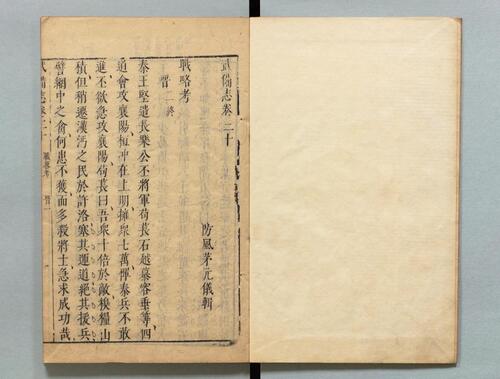 武備志卷二十
防風茅元儀輯
戰略考
晉二終
秦王堅遣長樂公丕將軍苟長石越慕容垂等四
道會攻襄陽桓冲在上明擁衆七萬憚秦兵不敢
進丕欲急攻襄陽苟長曰吾衆十倍於敵糗糧山
積但稍遷漢沔之民於許洛塞其運道絕其援兵
譬網中之禽何患不獲而多殺將士急求成功哉
武備志卷二十
戰略考